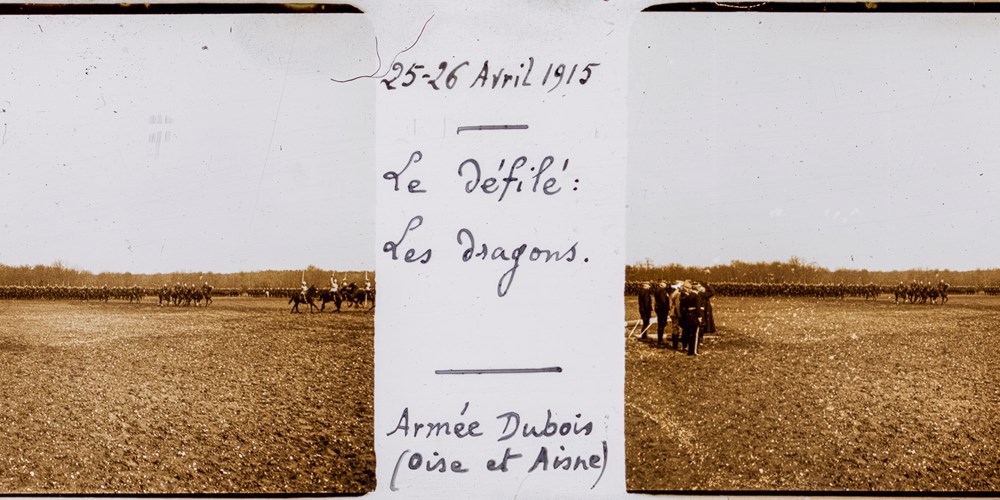 25-26 Avril 1915
Le défilé:
Les dragons.
Armée Dubois
(Oise et Aisne)